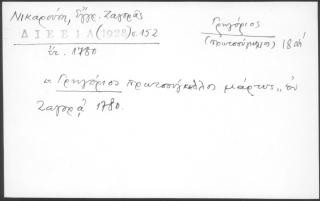 Νικαρούση, Ἔγγρ. Ζαγορᾶς
ΔΙΕΕΙΑ(1928)σ.152
ἐν. 1780
Γρηγόριος
(πρωτοσύγκελλος) 18 αἰ
« Γρηγόριος πρωτοσύγκελλος μάρτυς „ ἐν
Ζαγορᾷ 1780.